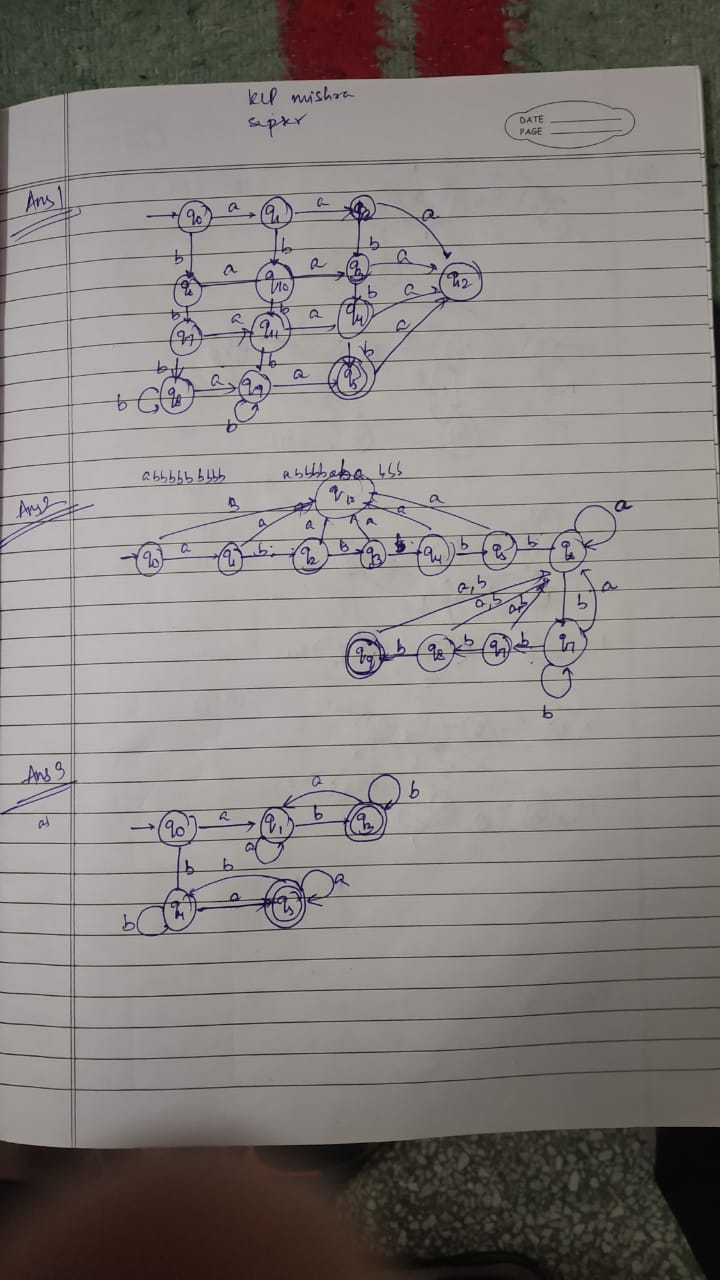 KLP mishra
DATE
PAGE
Ans 1
q0 a q1 a a
b b b
a q10 a q3 a q12
b b b a
q7 a q11 a q4 a
b b b
b q8 a q9 a q5
b
abbbbbbbbbb abbbbaba bbb
Ans 2
q10
B a a a a a
q0 a q1 b q2 b q3 b q4 b q5 b q6 a
a,b a,b a,b b a
q9 b q8 b q7 b q7
b
Ans 3
a)
q0 a q1 b q2 b
a a
b b
b q4 a q5 a